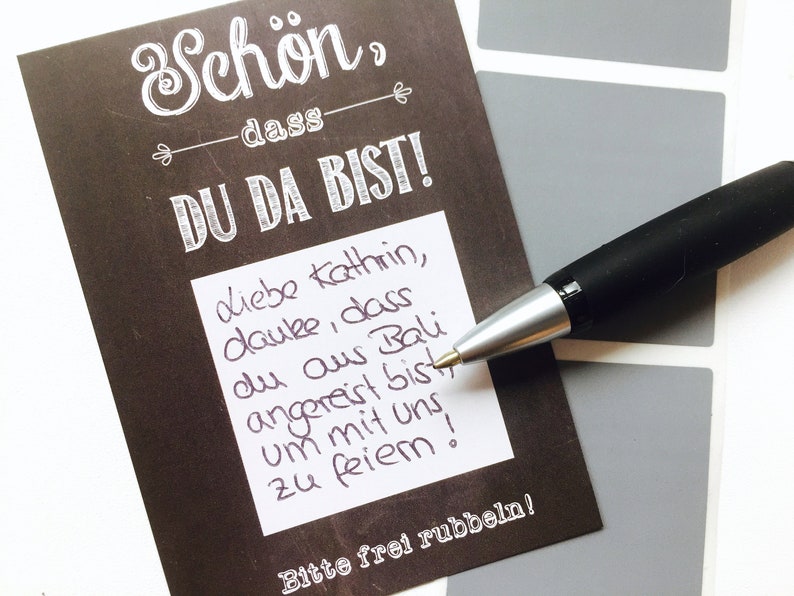 Schön,
dass
DU DA BIST!
Liebe Kathrin,
danke, dass
du aus Bali
angereist bist,
um mit uns
zu feiern!
Bitte frei rubbeln!